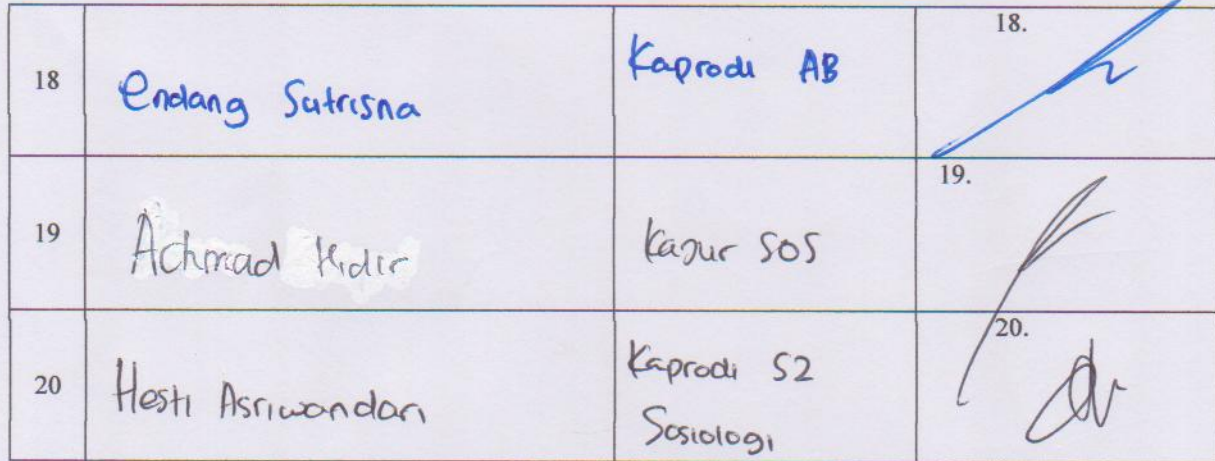 18 Endang Sutrisna Kaprodi AB 18.
19 Achmad Hidir Kajur SOS 19.
20 Hesti Asriwandari Kaprodi S2 20.
Sosiologi